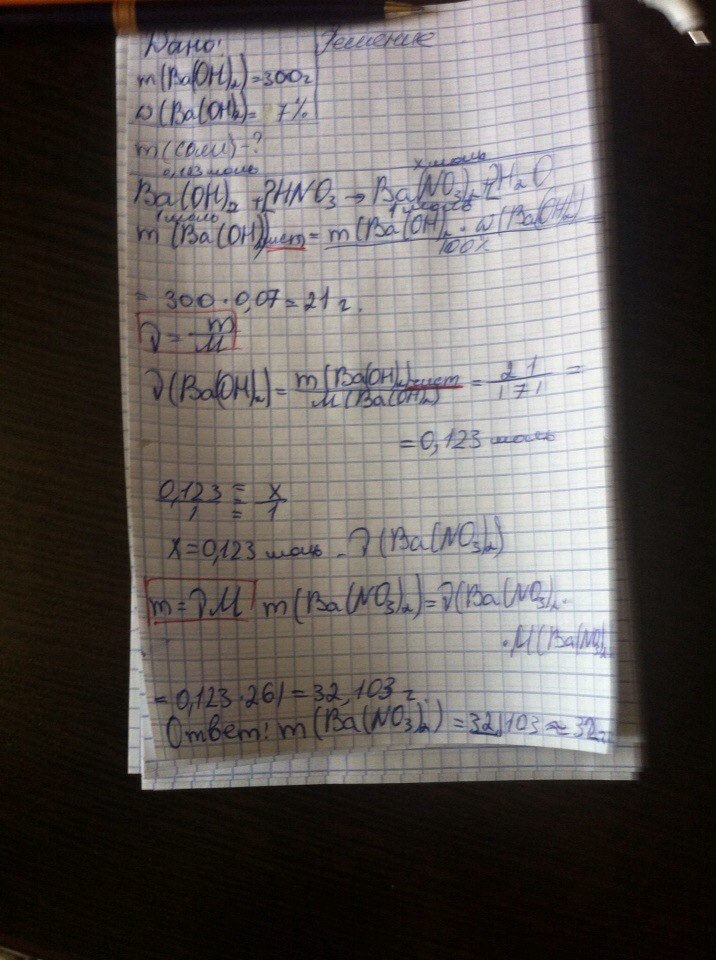 Дано: Решение
m(Ba(OH)₂)=300г
ω(Ba(OH)₂= 7%
m(соли)-?
0,123 моль х моль
Ba(OH)₂ + 2HNO₃ → Ba(NO₃)₂ + 2H₂O
1 моль 1 моль
m(Ba(OH)₂)чист = m(Ba(OH)₂ · ω(Ba(OH)₂) / 100%
= 300 · 0,07 = 21 г.
ν = m/M
ν(Ba(OH)₂) = m(Ba(OH)₂)чист / M(Ba(OH)₂) = 21/171 =
= 0,123 моль
0,123/1 = x/1
x = 0,123 моль - ν(Ba(NO₃)₂)
m = νM m(Ba(NO₃)₂) = ν(Ba(NO₃)₂ ·
· M(Ba(NO₃)₂
= 0,123 · 261 = 32,103 г.
Ответ: m(Ba(NO₃)₂) = 32,103 ≈ 32г